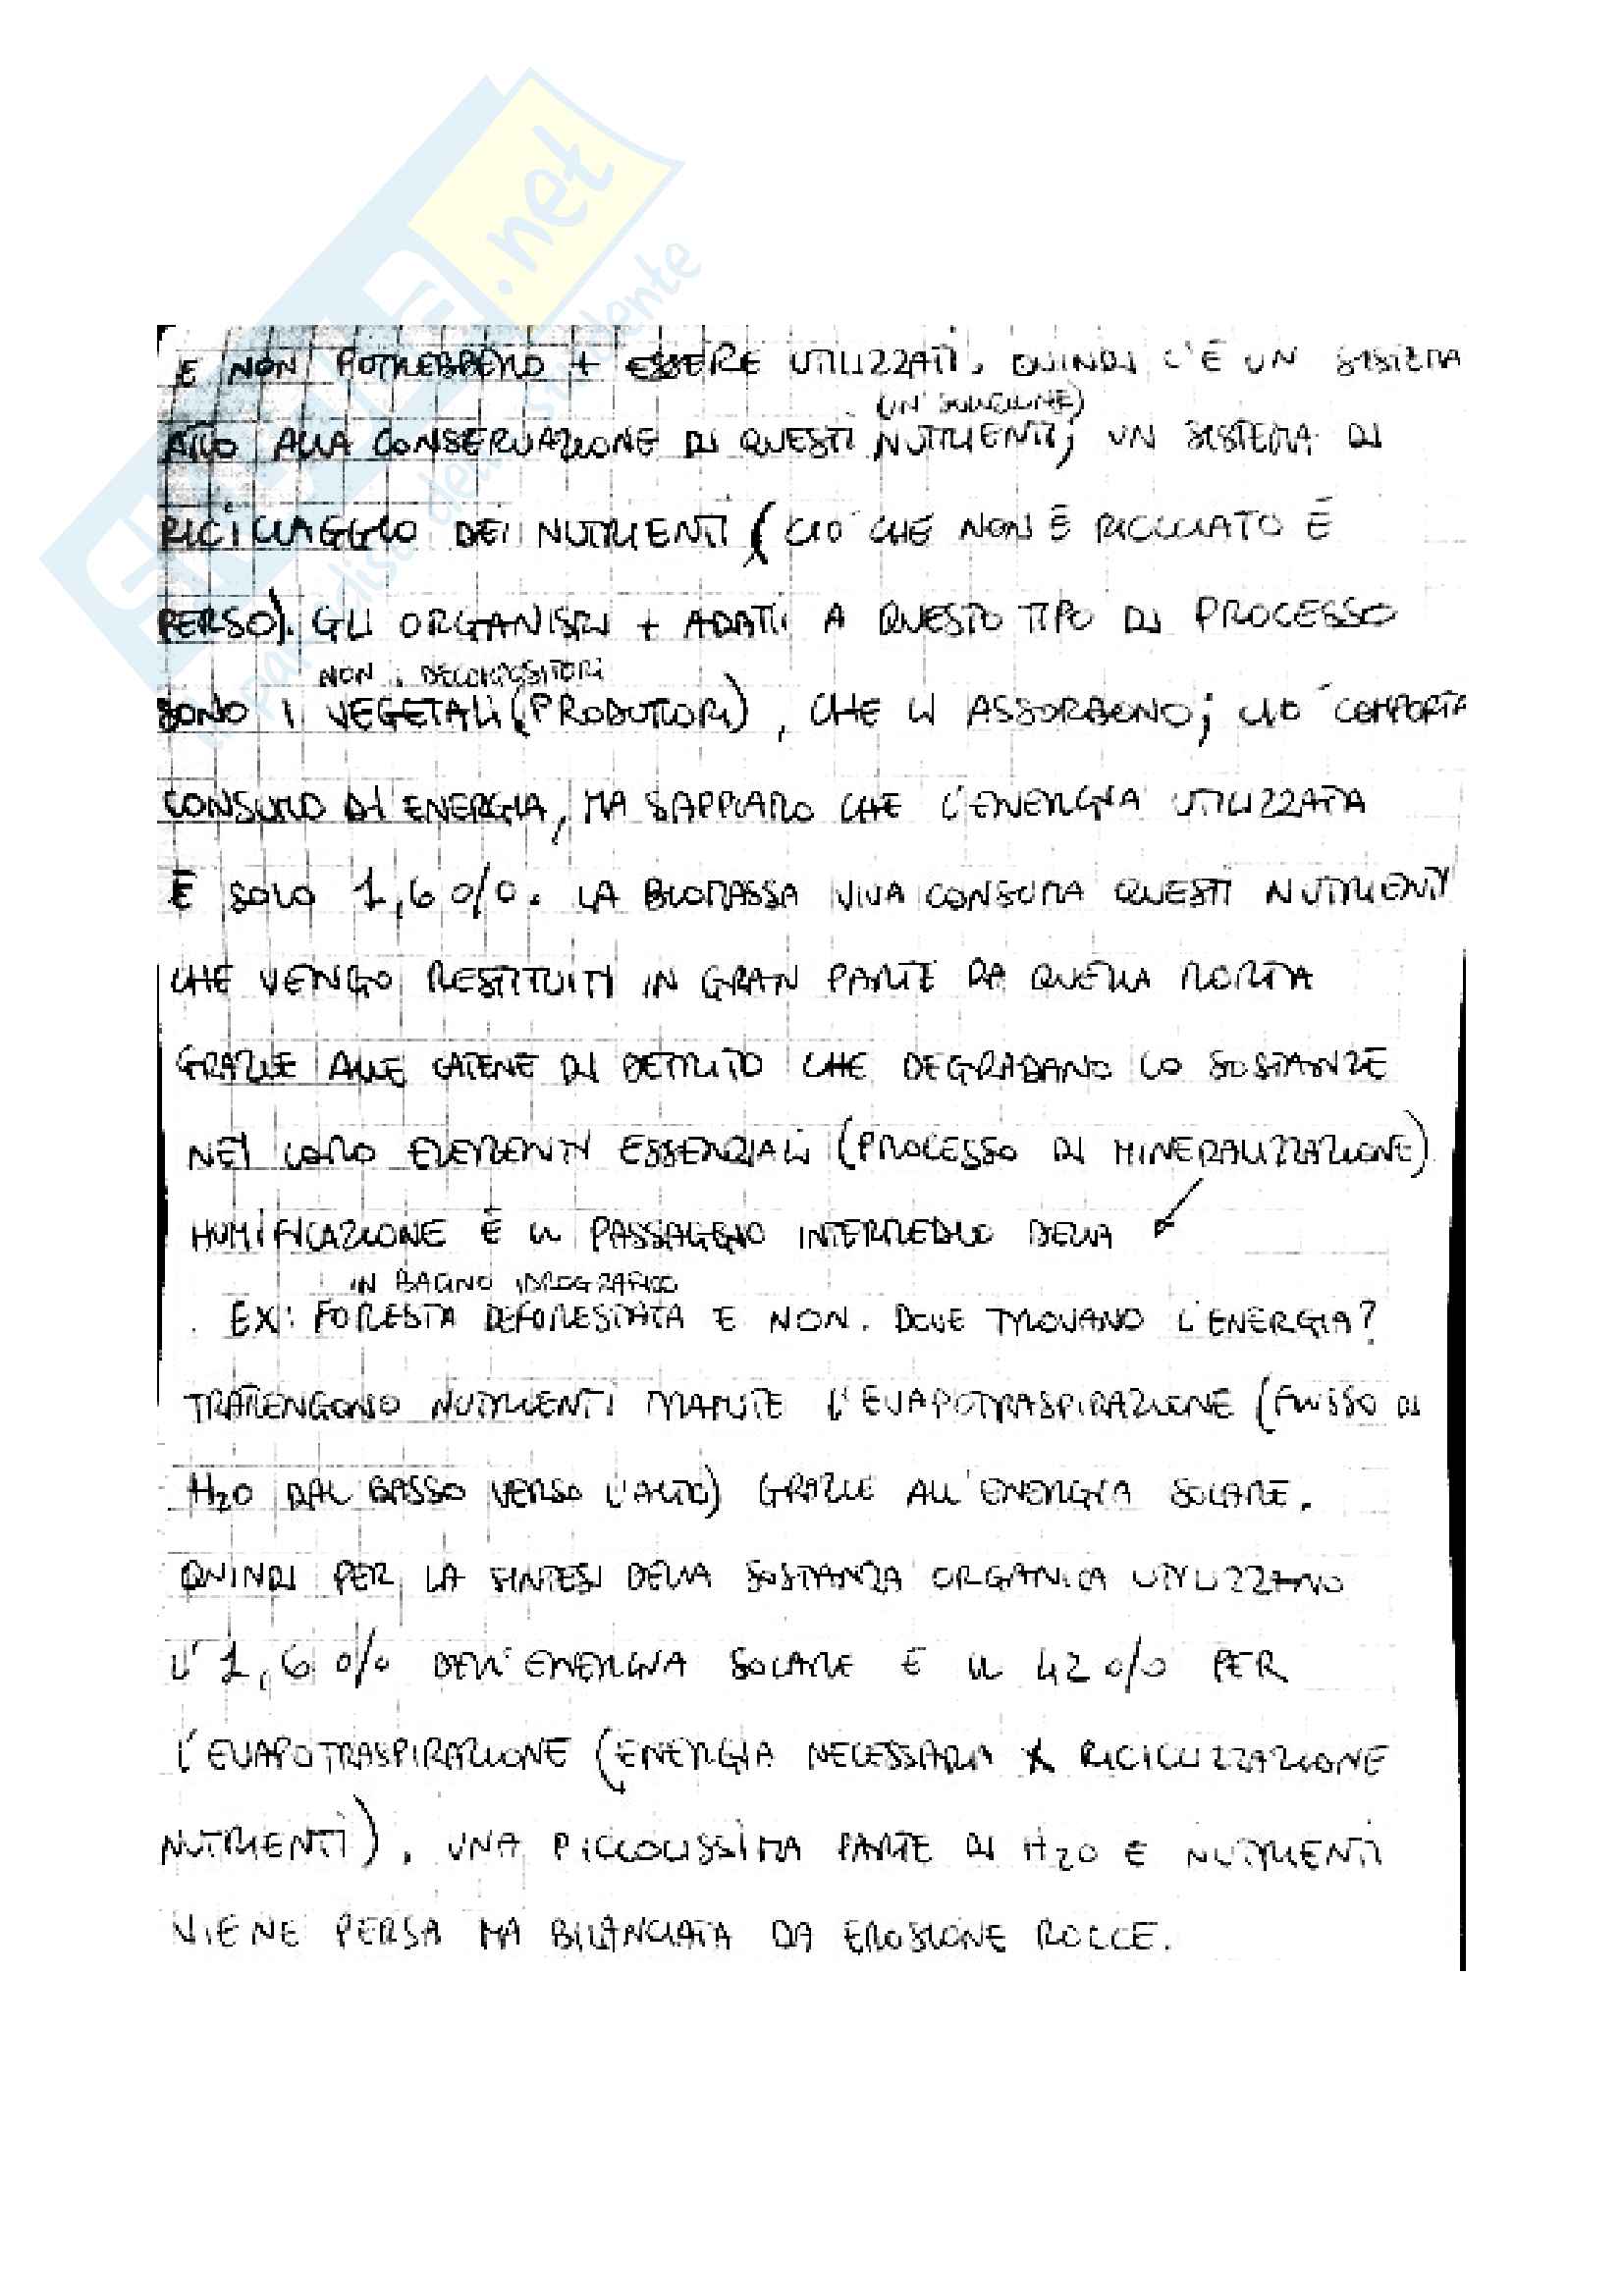 SKUOLA.net
il paradiso dello studente
E NON POTREBBERO + ESSERE UTILIZZATI. QUINDI C'È UN SISTEMA
(IN SOLUZIONE)
ATTO ALLA CONSERVAZIONE DI QUESTI NUTRIENTI; UN SISTEMA DI
RICICLAGGIO DEI NUTRIENTI (CIÒ CHE NON È RICICLATO È
PERSO). GLI ORGANISMI + ADATTI A QUESTO TIPO DI PROCESSO
NON I DECOMPOSITORI
SONO I VEGETALI (PRODUTTORI), CHE LI ASSORBONO; CIÒ COMPORTA
CONSUMO DI ENERGIA, MA SAPPIAMO CHE L'ENERGIA UTILIZZATA
È SOLO 1,6%. LA BIOMASSA VIVA CONSUMA QUESTI NUTRIENTI
CHE VENGO RESTITUITI IN GRAN PARTE DA QUELLA MORTA
GRAZIE ALLE CATENE DI DETRITO CHE DEGRADANO LO SOSTANZE
NEI LORO ELEMENTI ESSENZIALI (PROCESSO DI MINERALIZZAZIONE)
HUMIFICAZIONE È IL PASSAGGIO INTERMEDIO DELLA
IN BACINO IDROGRAFICO
. EX: FORESTA DEFORESTATA E NON. DOVE TROVANO L'ENERGIA?
TRATTENGONO NUTRIENTI TRAMITE L'EVAPOTRASPIRAZIONE (FLUSSO DI
H2O DAL BASSO VERSO L'ALTO) GRAZIE ALL'ENERGIA SOLARE.
QUINDI PER LA SINTESI DELLA SOSTANZA ORGANICA UTILIZZANO
L'1,6% DELL'ENERGIA SOLARE E IL 42% PER
L'EVAPOTRASPIRAZIONE (ENERGIA NECESSARIA X RICICLIZZAZIONE
NUTRIENTI). UNA PICCOLISSIMA PARTE DI H2O E NUTRIENTI
VIENE PERSA MA BILANCIATA DA EROSIONE ROCCE.